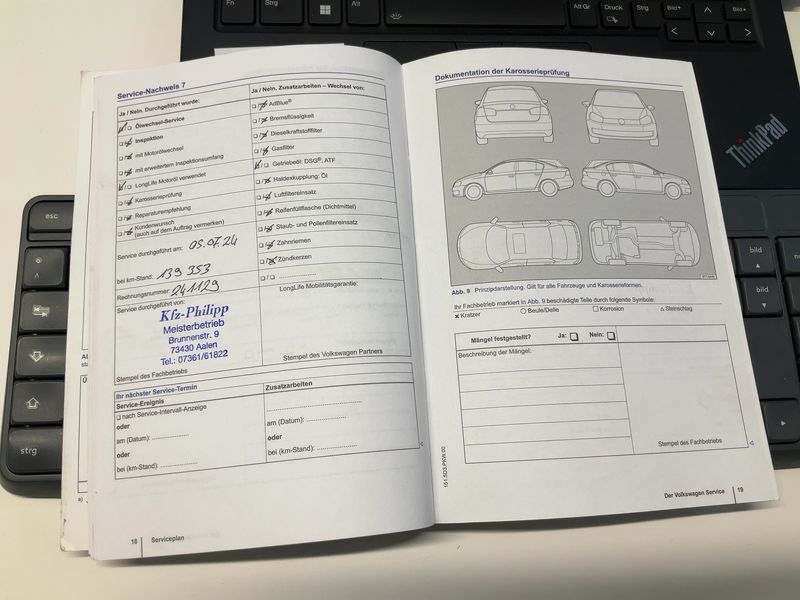 Fn
Strg
Alt
Alt Gr
Druck
Strg
Bild
Bild
esc
strg
bild
bild
ThinkPad
Service-Nachweis 7
Ja / Nein. Durchgeführt wurde:
☑/☐ Ölwechsel-Service
Inspektion
☐/☑ mit Motorölwechsel
☐/☑ mit erweitertem Inspektionsumfang
☑/☐ LongLife Motoröl verwendet
☐/☑ Karosserieprüfung
☐/☑ Reparaturempfehlung
☐/☑ Kundenwunsch
(auch auf dem Auftrag vermerken)
Service durchgeführt am: 05.07.24
bei km-Stand: 139 353
Rechnungsnummer: 241129
Service durchgeführt von:
Kfz-Philipp
Meisterbetrieb
Brunnenstr. 9
73430 Aalen
Tel.: 07361/61822
Stempel des Fachbetriebs
Ja / Nein. Zusatzarbeiten – Wechsel von:
☐/☑ AdBlue®
☐/☑ Bremsflüssigkeit
☐/☑ Dieselkraftstofffilter
☐/☑ Gasfilter
☑/☐ Getriebeöl: DSG®, ATF
☐/☑ Haldexkupplung: Öl
☐/☑ Luftfiltereinsatz
☐/☑ Reifenfüllflasche (Dichtmittel)
☐/☑ Staub- und Pollenfiltereinsatz
☐/☑ Zahnriemen
☐/☑ Zündkerzen
☐/☐ ....................
LongLife Mobilitätsgarantie:
Stempel des Volkswagen Partners
Ihr nächster Service-Termin
Service-Ereignis
☐ nach Service-Intervall-Anzeige
oder
am (Datum): ....................
oder
bei (km-Stand): ....................
Zusatzarbeiten
........................................
am (Datum): ....................
oder
bei (km-Stand): ....................
18 Serviceplan
Dokumentation der Karosserieprüfung
Abb. 9 Prinzipdarstellung. Gilt für alle Fahrzeuge und Karosserieformen.
Ihr Fachbetrieb markiert in Abb. 9 beschädigte Teile durch folgende Symbole:
x Kratzer ○ Beule/Delle □ Korrosion △ Steinschlag
Mängel festgestellt? Ja: ☐ Nein: ☐
Beschreibung der Mängel:
Stempel des Fachbetriebs
151.5D3.PKW.00
Der Volkswagen Service 19